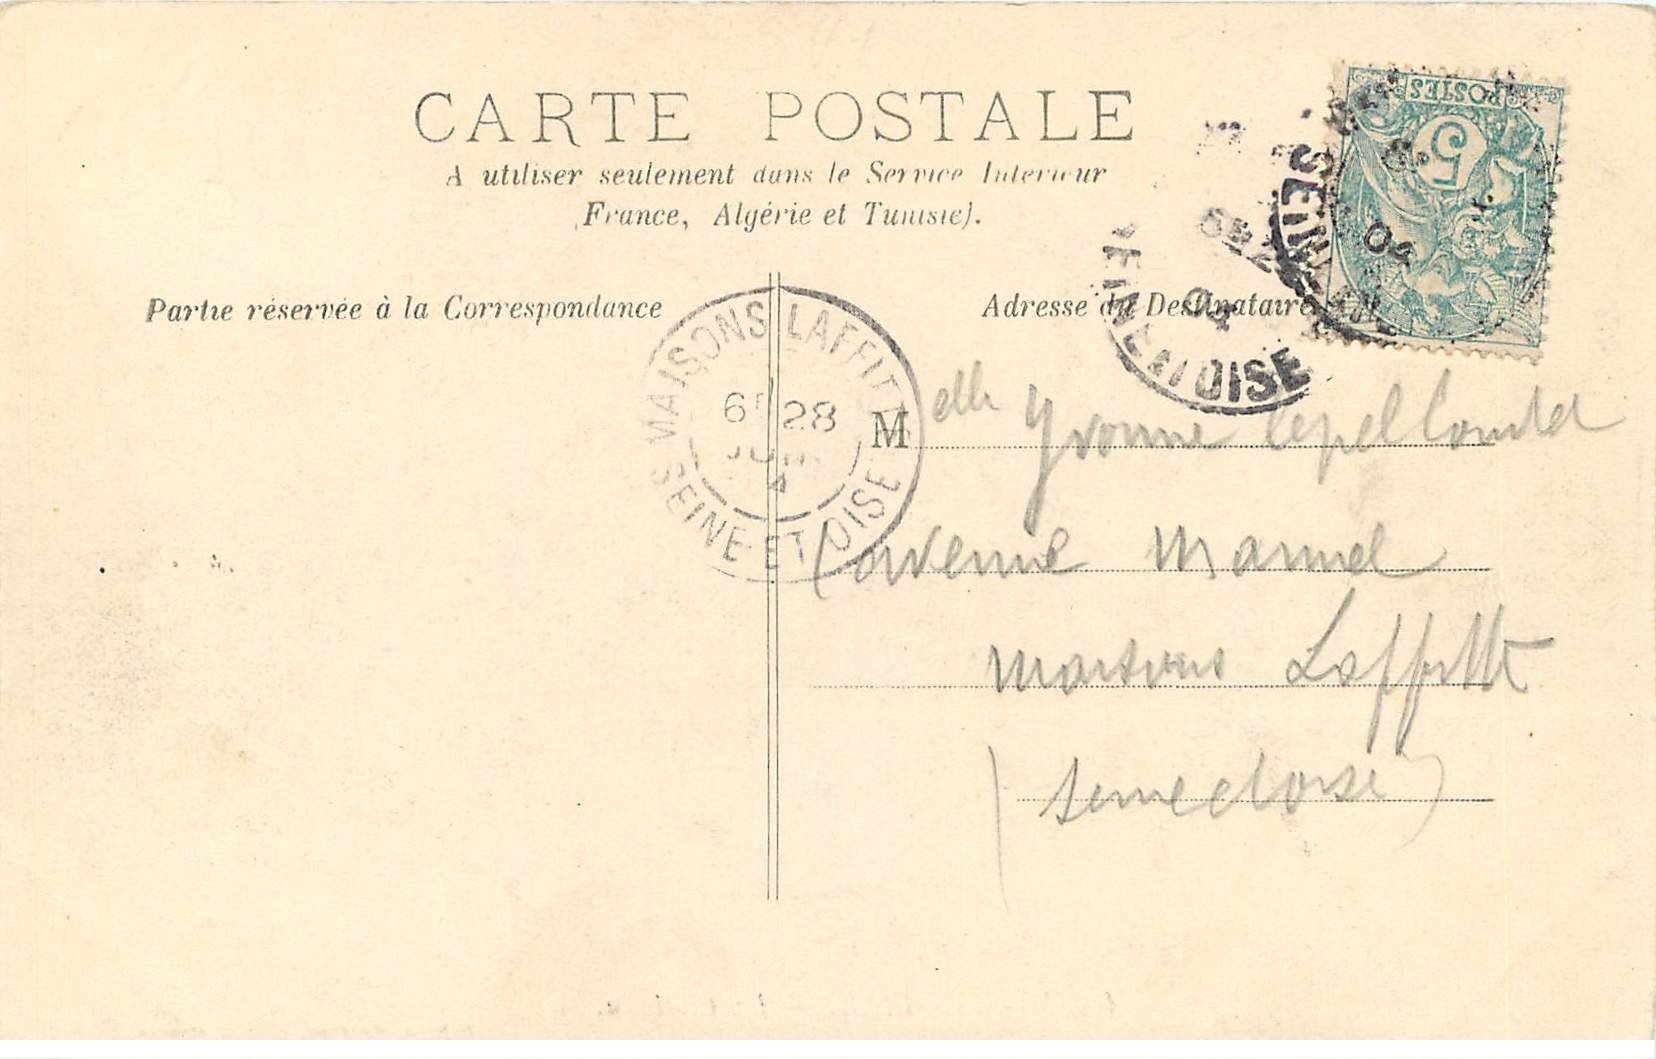 CARTE POSTALE
A utiliser seulement dans le Service Intérieur
France, Algérie et Tunisie).
POSTES
5
04
SEINE
04
SEINE ET OISE
Partie réservée à la Correspondance
Adresse du Destinataire
MAISONS LAFFITTE
6E 28
JUIN
4
SEINE ET OISE
Melle Yvonne
avenue Manuel
Maisons Laffitte
(Seine et Oise)